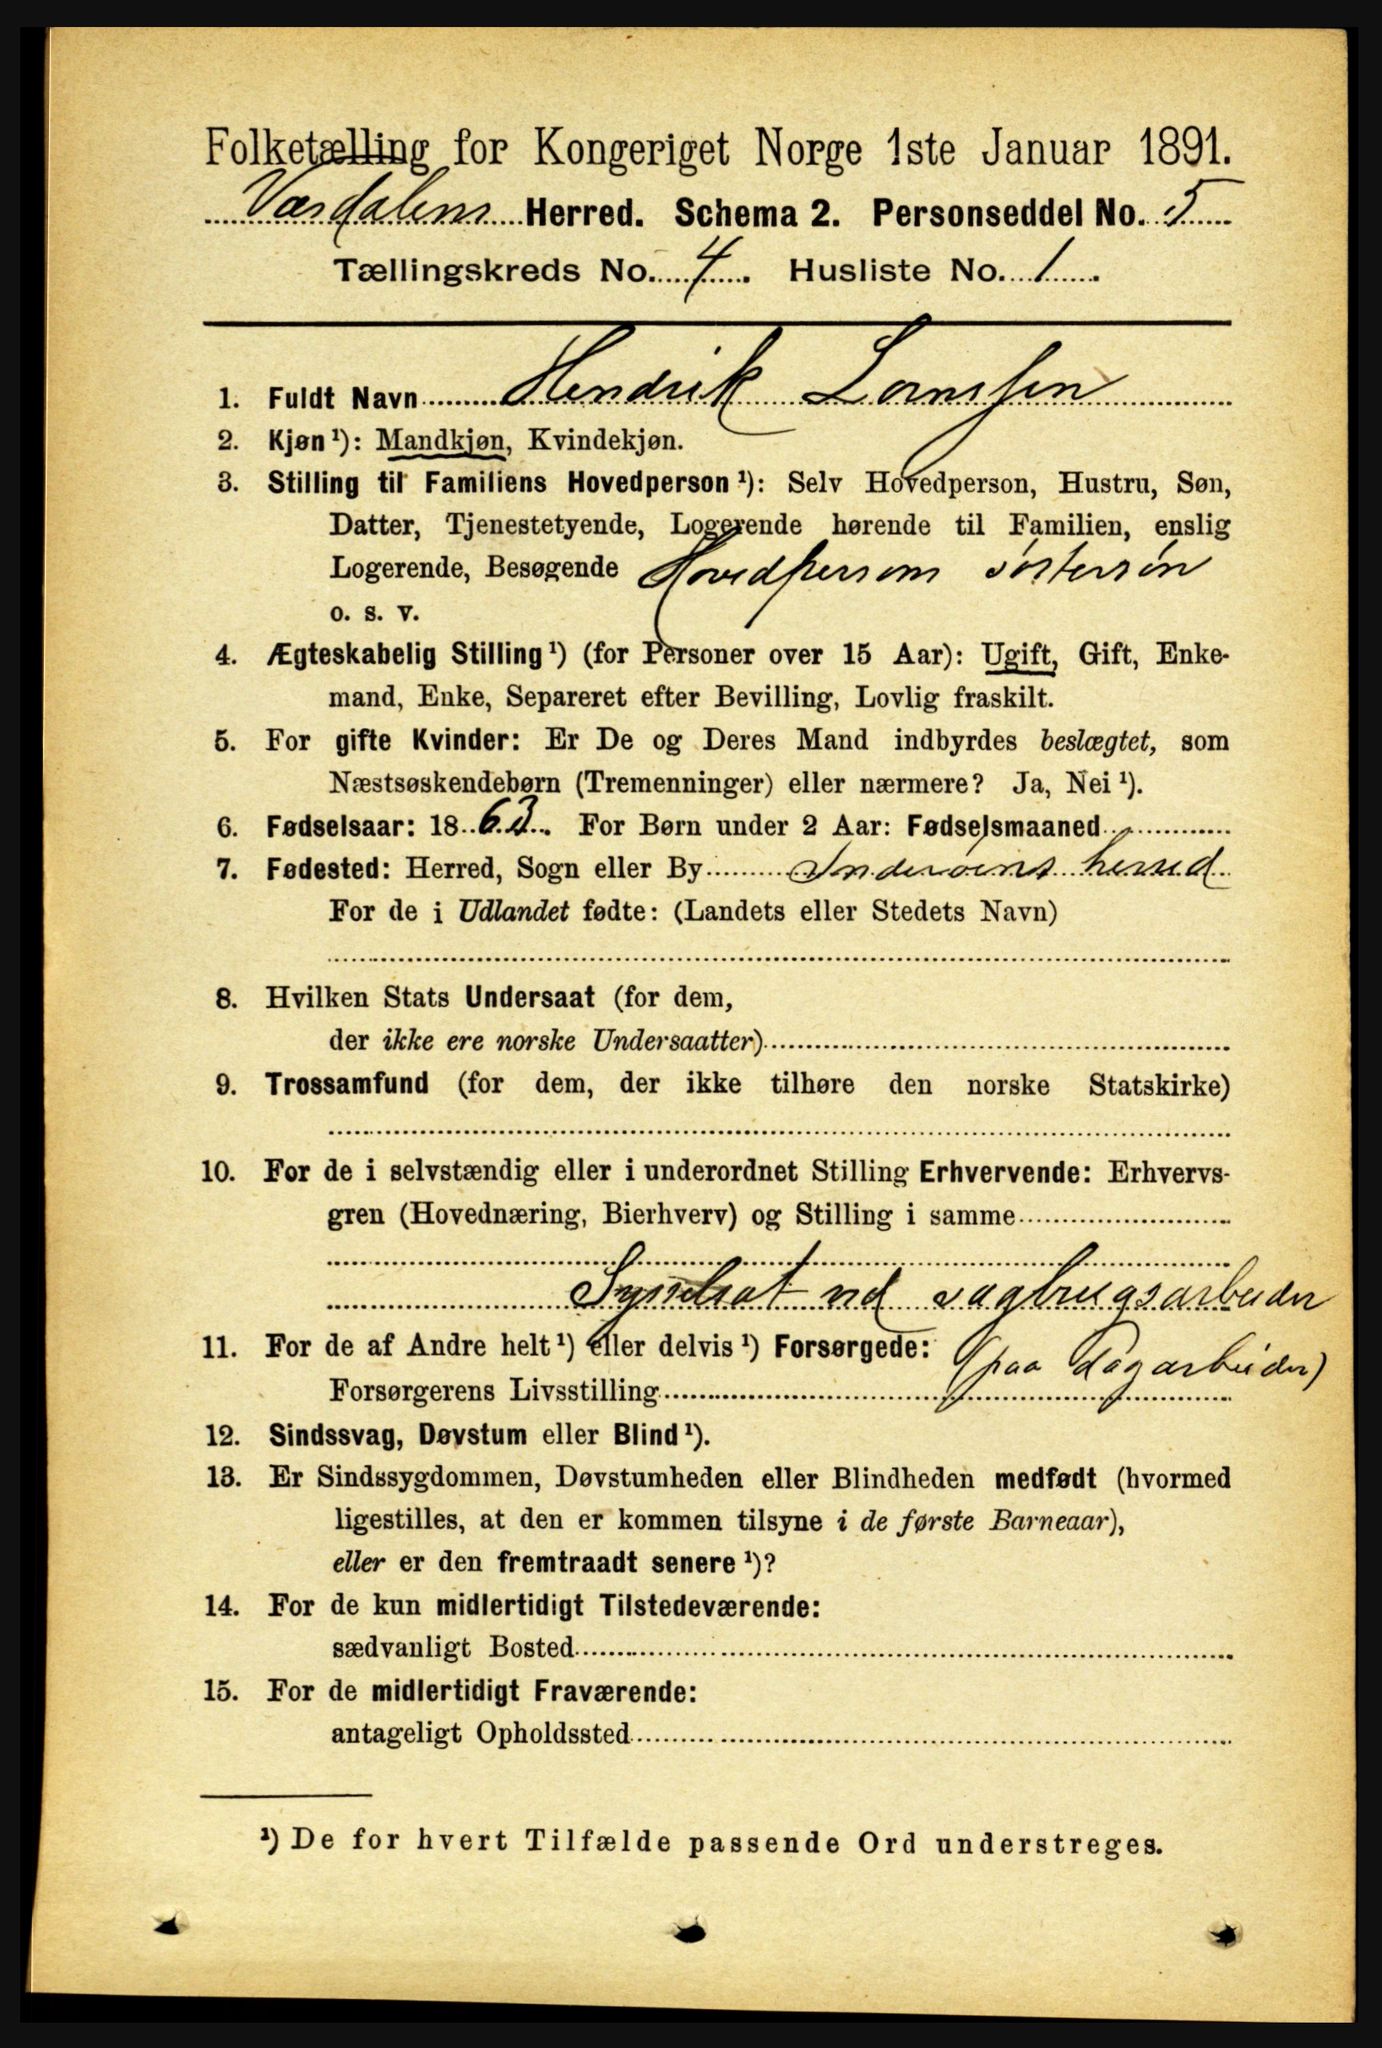 Folketælling for Kongeriget Norge 1ste Januar 1891.
Værdalens Herred. Schema 2. Personseddel No. 5
Tællingskreds No. 4. Husliste No. 1.
1. Fuldt Navn Hendrik Lornssen
2. Kjøn ¹): Mandkjøn, Kvindekjøn.
3. Stilling til Familiens Hovedperson ¹): Selv Hovedperson, Hustru, Søn,
Datter, Tjenestetyende, Logerende hørende til Familien, enslig
Logerende, Besøgende Hovedperson søstersøn
o. s. v.
4. Ægteskabelig Stilling ¹) (for Personer over 15 Aar): Ugift, Gift, Enke-
mand, Enke, Separeret efter Bevilling, Lovlig fraskilt.
5. For gifte Kvinder: Er De og Deres Mand indbyrdes beslægtet, som
Næstsøskendebørn (Tremenninger) eller nærmere? Ja, Nei ¹).
6. Fødselsaar: 1863. For Børn under 2 Aar: Fødselsmaaned
7. Fødested: Herred, Sogn eller By Inderøens herred
For de i Udlandet fødte: (Landets eller Stedets Navn)
8. Hvilken Stats Undersaat (for dem,
der ikke ere norske Undersaatter)
9. Trossamfund (for dem, der ikke tilhøre den norske Statskirke)
10. For de i selvstændig eller i underordnet Stilling Erhvervende: Erhvervs-
gren (Hovednæring, Bierhverv) og Stilling i samme
Sysselsat ved sagbrugsarbeider
11. For de af Andre helt ¹) eller delvis ¹) Forsørgede: (paa Dagarbeider)
Forsørgerens Livsstilling
12. Sindssvag, Døvstum eller Blind ¹).
13. Er Sindssygdommen, Døvstumheden eller Blindheden medfødt (hvormed
ligestilles, at den er kommen tilsyne i de første Barneaar),
eller er den fremtraadt senere ¹)?
14. For de kun midlertidigt Tilstedeværende:
sædvanligt Bosted
15. For de midlertidigt Fraværende:
antageligt Opholdssted
¹) De for hvert Tilfælde passende Ord understreges.